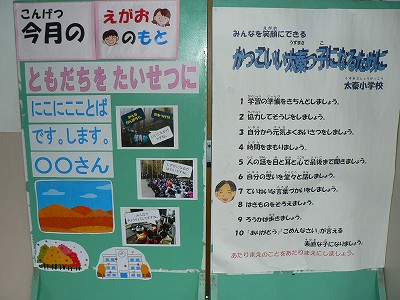 こんげつ
今月の
えがお
のもと
ともだちを たいせつに
にこにこことば
です。します。
○○さん
えがお
みんなを笑顔にできる
うずまさ
かっこいい太秦っ子になるために
うずまさしょうがっこう
太秦小学校
1 学習の準備をきちんとしましょう。
2 協力してそうじをしましょう。
3 自分から元気よくあいさつをしましょう。
4 時間をまもりましょう。
5 人の話を目と耳と心で最後まで聞きましょう。
6 自分の思いを堂々と話しましょう。
7 ていねいな言葉づかいをしましょう。
8 はきものをそろえましょう。
9 ろうかは歩きましょう。
10 「ありがとう」「ごめんなさい」が言える
素直な子になりましょう。
あたりまえのことをあたりまえにしましょう。